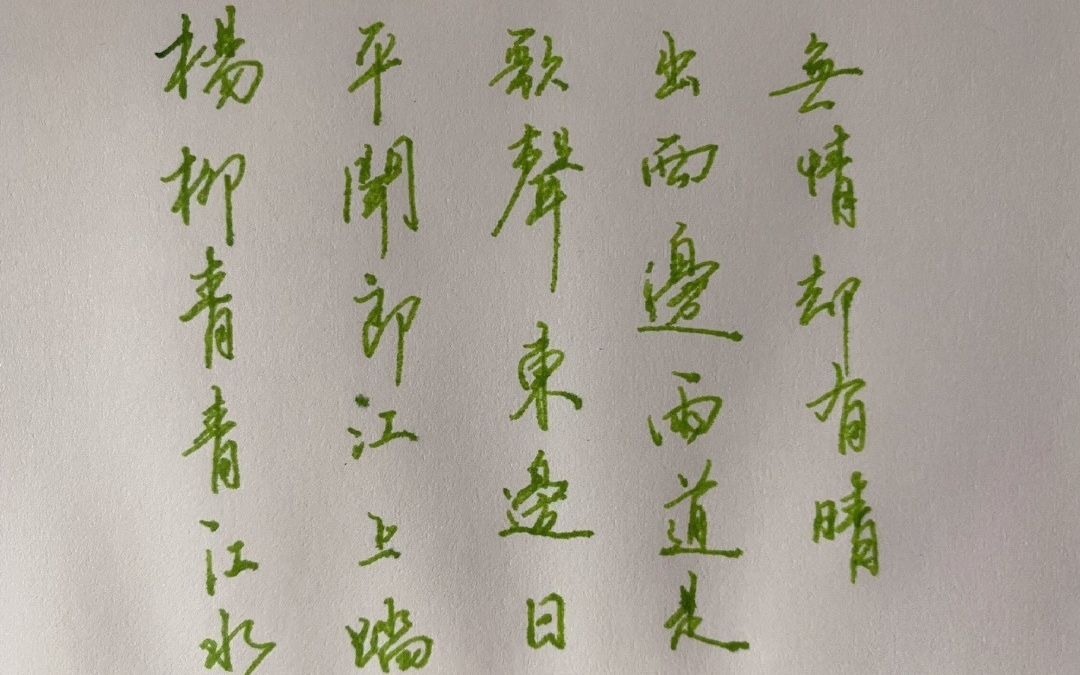 楊柳青青江水
平聞郎江上踏
歌聲東邊日
出西邊雨道是
無情却有晴